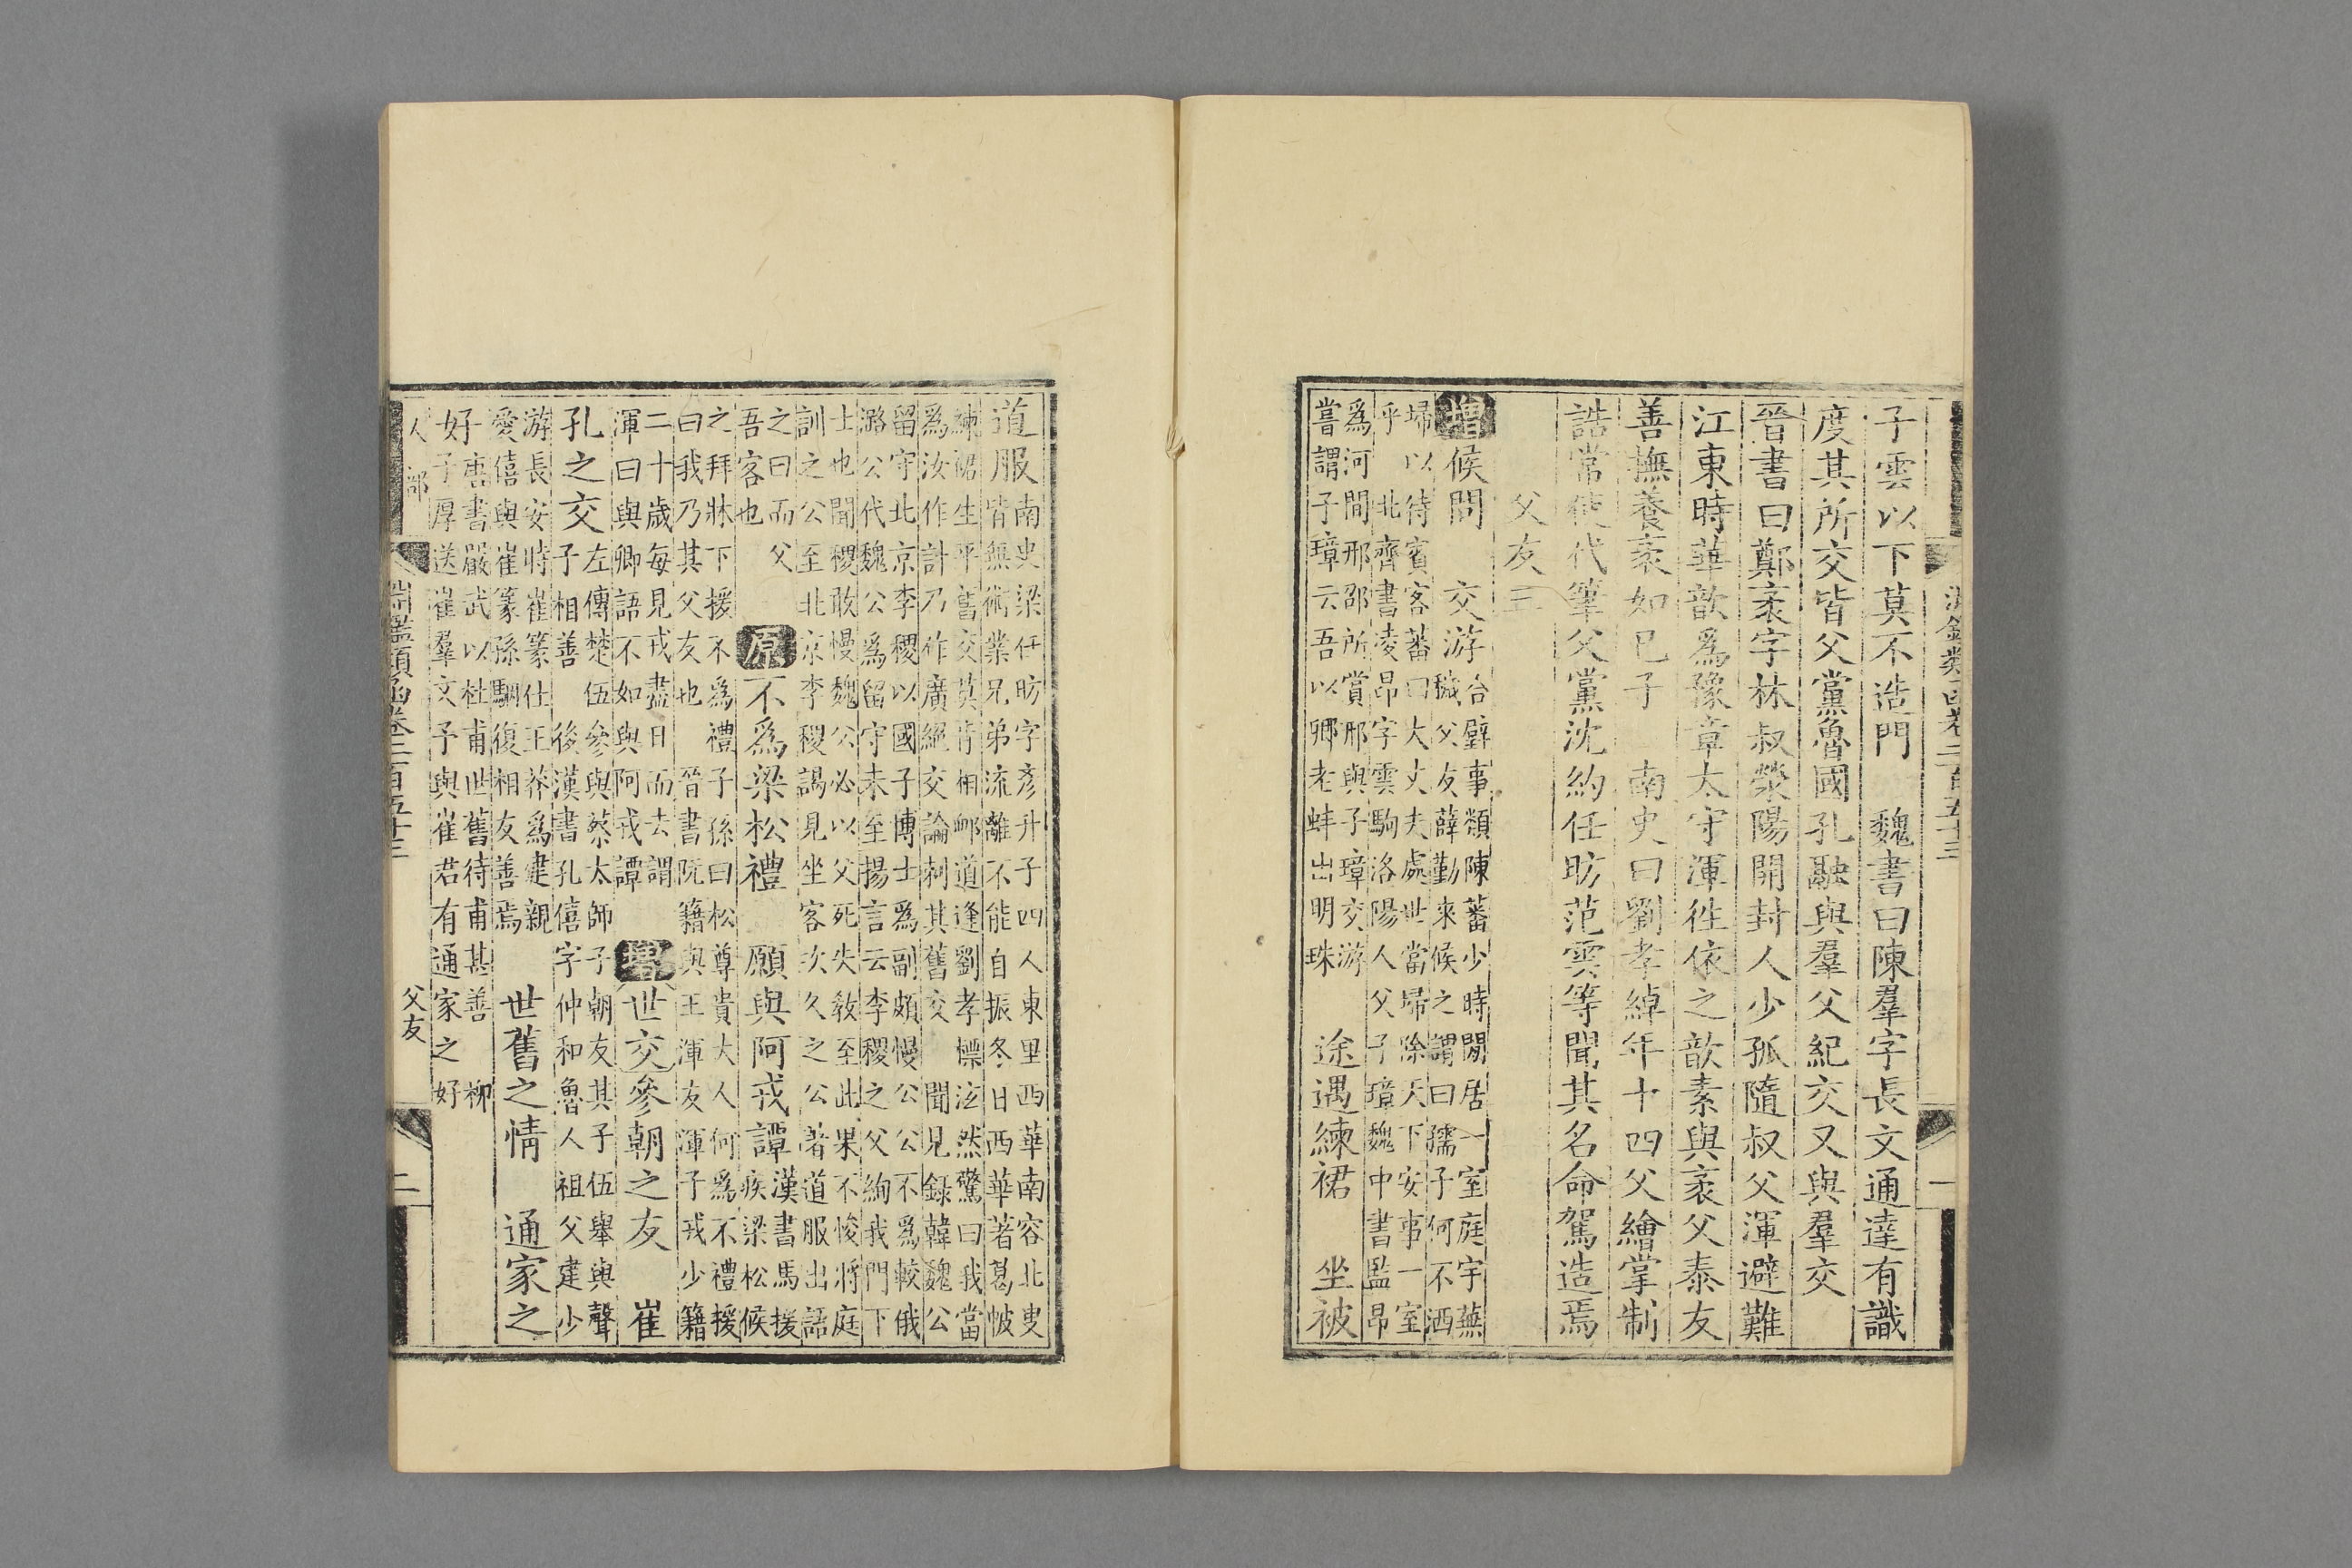 子雲以下莫不造門　魏書曰陳羣字長文通達有識
度其所交皆父黨魯國孔融與羣父紀交又與羣交
晉書曰鄭袤字林叔滎陽開封人少孤隨叔父渾避難
江東時華歆爲豫章太守渾往依之歆素與袤父泰友
善撫養袤如已子　南史曰劉孝綽年十四父繪掌制
誥常使代筆父黨沈約任昉范雲等聞其名命駕造焉
父友三
增候問　交游
台璧事類陳蕃少時閒居一室庭宇蕪
穢父友薛勤來候之謂曰孺子何不洒
埽以待賓客蕃曰大丈夫處世當埽除天下安事一室
乎　北齊書凌昂字雲駒洛陽人父子璋魏中書監昂
爲河間邢邵所賞邢與子璋交游
嘗謂子璋云吾以卿老蚌出明珠
途遇練裙　坐被
道服
南史梁任昉字彥升子四人東里西華南容北叟
皆無術業兄弟流離不能自振冬日西華著葛帔
練裙生平舊交莫肯相卹道逢劉孝標泫然驚曰我當
爲汝作計乃作廣絕交論刺其舊交　聞見錄韓魏公
留守北京李稷以國子博士爲副頗慢公公不爲較俄
潞公代魏公爲留守未至揚言云李稷之父絢我門下
士也聞稷敢慢魏公必以父死失敎至此果不悛將庭
訓之公至北京李稷謁見坐客次久之公著道服出語
之曰而父
吾客也
原不爲梁松禮　願與阿戎譚
漢書馬援
疾梁松候
之拜牀下援不爲禮子孫曰松尊貴大人何爲不禮援
曰我乃其父友也　晉書阮籍與王渾友渾子戎少籍
二十歲每見戎盡日而去謂
渾曰與卿語不如與阿戎譚
增世交參朝之友　崔
孔之交
左傳楚伍參與蔡太師子朝友其子伍舉與聲
子相善　後漢書孔僖字仲和魯人祖父建少
游長安時崔篆仕王莽爲建親
愛僖與崔篆孫駰復相友善焉
世舊之情　通家之
好
唐書嚴武以杜甫世舊待甫甚善　柳
子厚送崔羣文子與崔君有通家之好
人部
淵鑑類函卷二百五十三
父友
二
淵鑑類函卷二百五十三
一